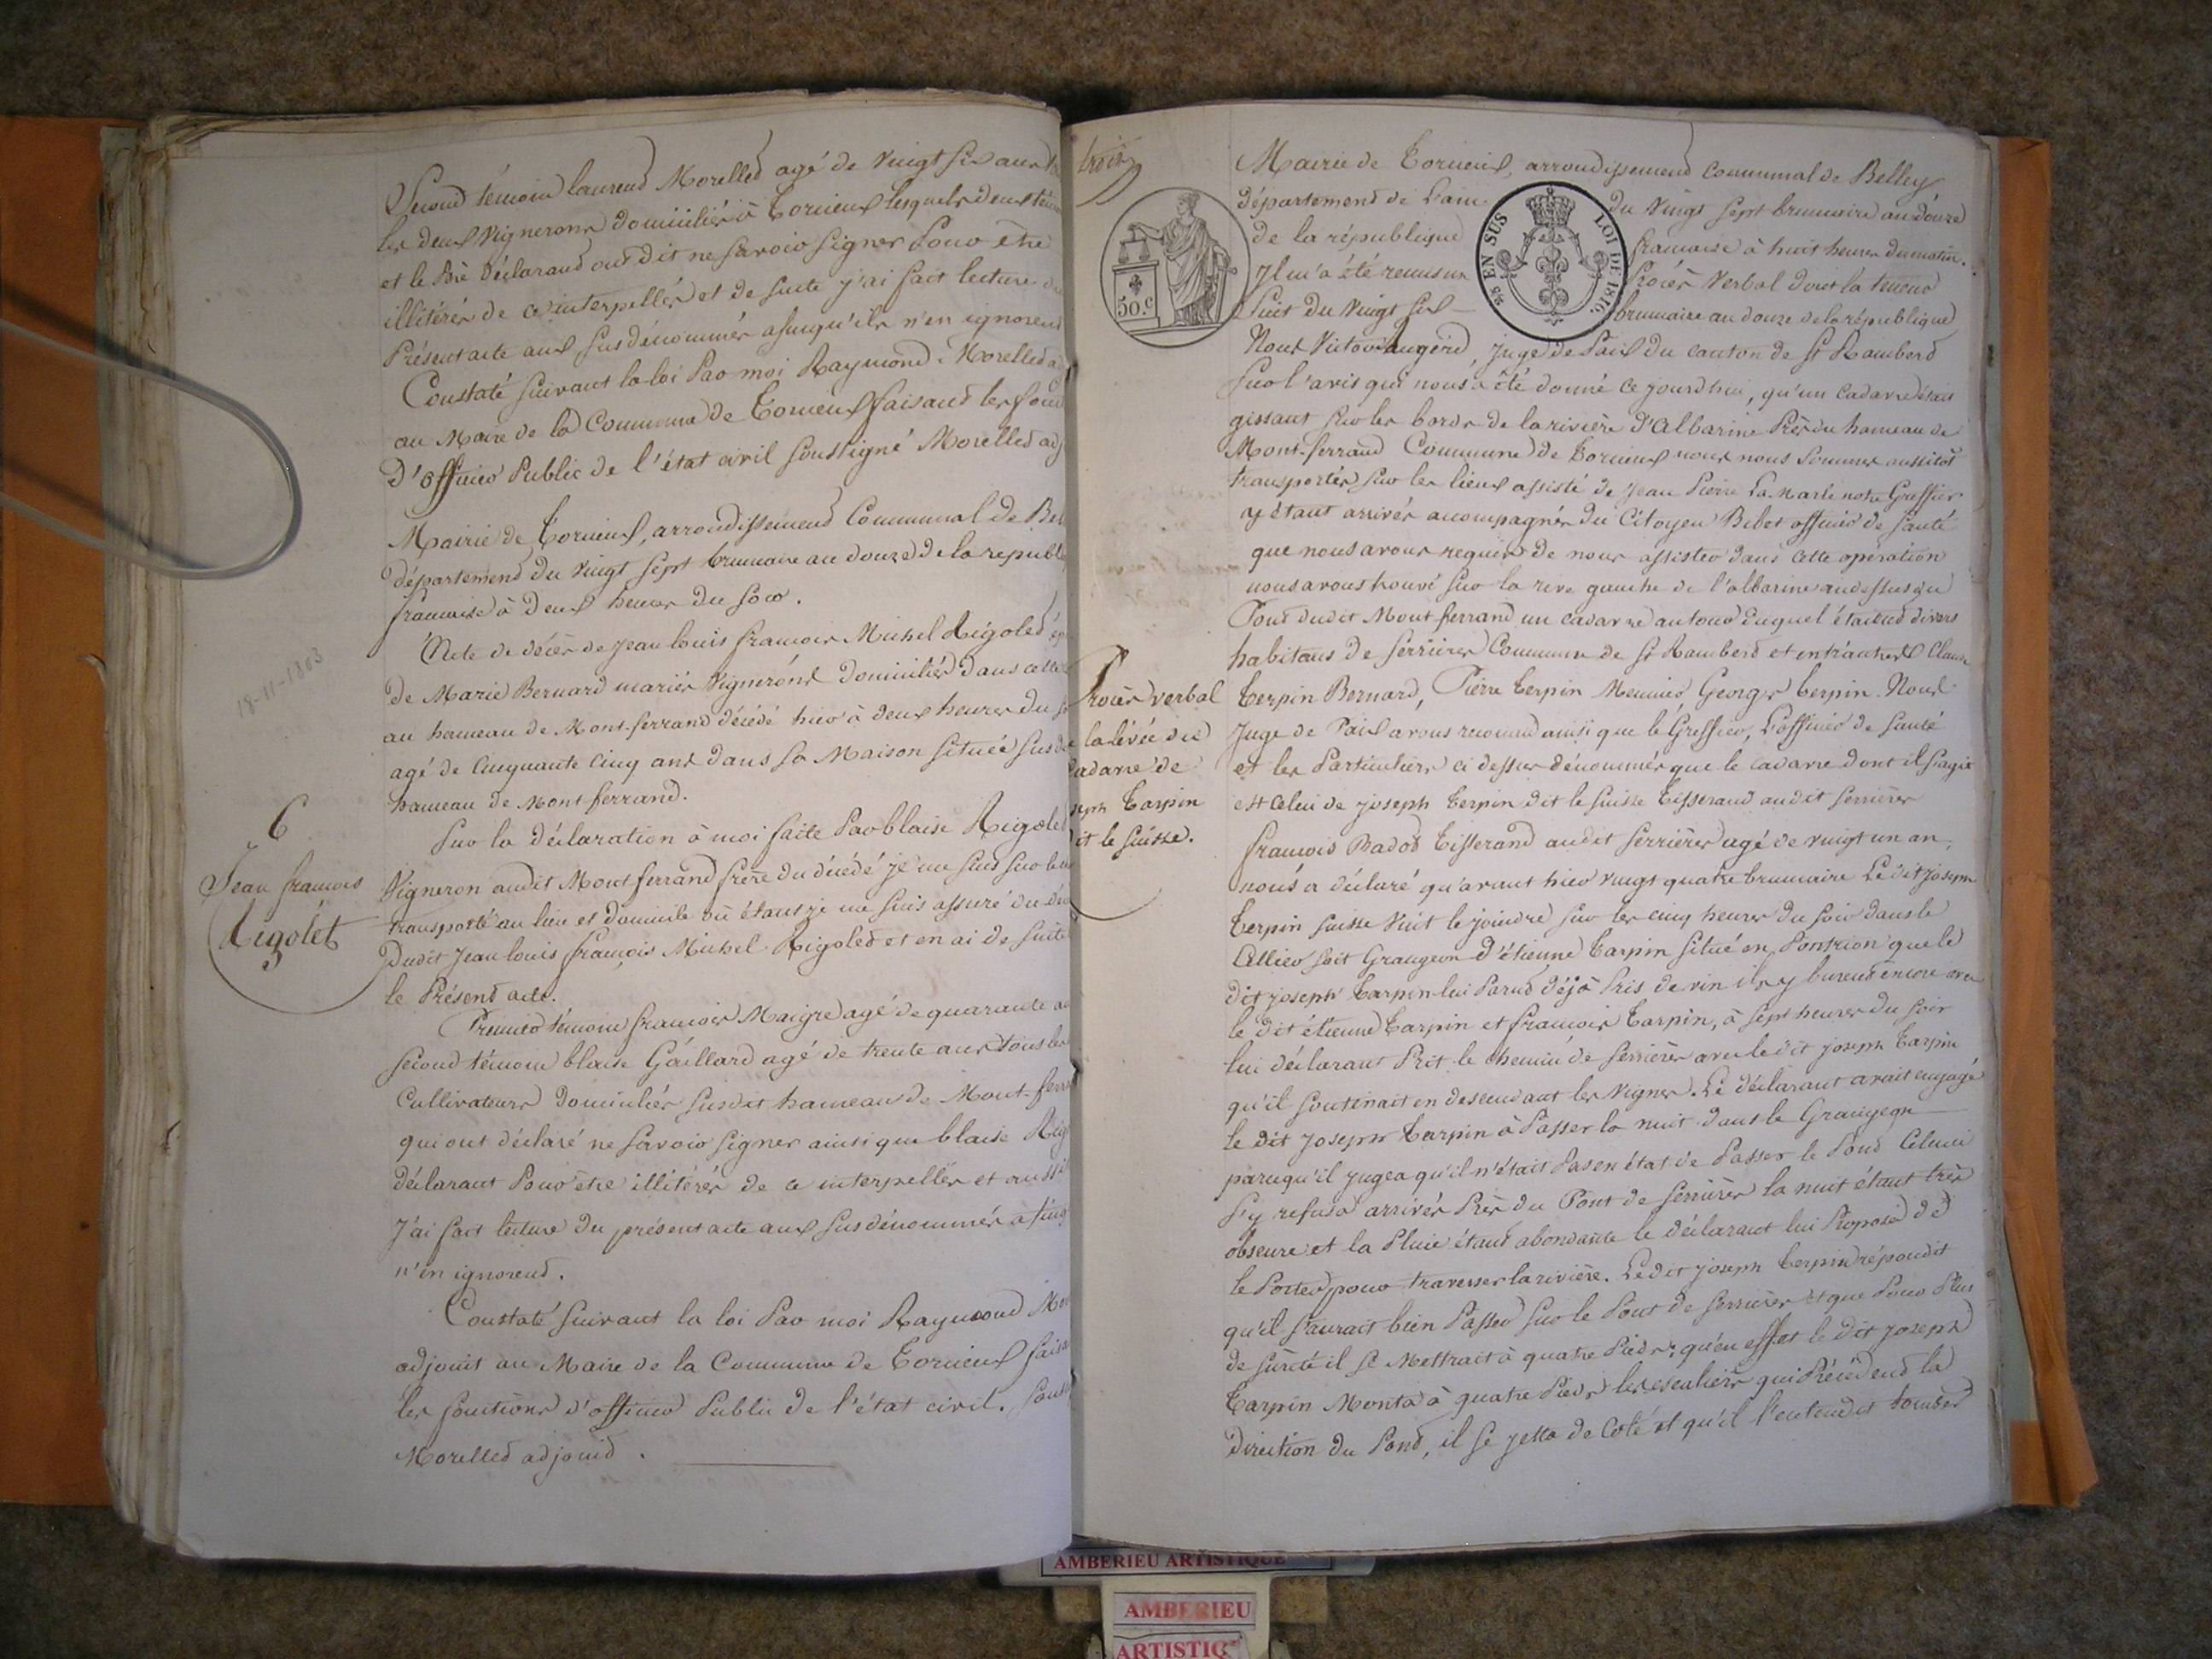 Second témoin laurend Morelled agé de vingt six ans
les deux vignerons domiciliés à Torcieux lesquels deux
et le Dit Déclarand ont dit ne savoir signer Pour etre
illitérés de ce interpellés et de suite j'ai fait lecture du
Présent acte aux susdénommés afinqu'ils n'en ignorend
Constaté suivant la loi Par moi Raymond Morelled
au Maire de la Commune de Torcieux faisand les
d'Officier Public de l'état civil soussigné Morelled
Mairie de Torcieux, arrondissemend Communal de
département du vingt sept brumaire an douze de la
francaise à deux heures du soir.
Acte de décès de Jean louis francois Michel Rigoled
de Marie Bernard mariés vignerons domiciliés dans
au hameau de Mont-ferrand décédé hier à deux heures du
agé de Cinquante cinq ans dans sa Maison située
hameau de Mont ferrand.
6
Jean francois
Rigolet
18-11-1803
sur la déclaration à moi faite Par blaise
Vigneron audit Mont ferrand frère du décédé je me suis sur
transporté au lieu et domicile où étant je me suis assuré du
Dudit Jean louis françois Michel Rigoled et en ai de suite
le Présend acte.
Premier témoin francois Maigre agé de quarante
second témoin blaise Gaillard agé de trente ans tous les
Cultivateurs domiciliés susdit hameau de
qui ont déclaré ne savoir signer ainsi que blaise
déclarant Pour être illitérés de ce interpellés et
J'ai fait lecture du présent acte aux susdénommés
n'en ignorend.
Constaté suivant la loi Par moi Raymond
adjoint au Maire de la Commune de Torcieux
les fonctions d'officier Public de l'état civil.
Morelled adjoind.
trois
50.c
25 EN SUS LOI DE 1816.
Mairie de Torcieux, arrondissemend communal de Belley
département de l'ain du vingt sept brumaire an douze
de la république francaise à huit heures du matin.
Il m'a été remis un Procès Verbal dont la teneur
suit du vingt six brumaire an douze de la république
Nous Victor augerd, Juge de Paix du canton de St Ramberd
sur l'avis qui nous a été donné ce jourd'hui, qu'un cadavre étais
gissant sur les bords de la rivière d'Albarine Près du hameau de
Mont-ferrand Commune de Torcieux nous nous sommes aussitôt
transportés sur les lieux assisté de Jean Pierre La Marle notre Greffier
y étant arrivés acompagnés du Citoyen Bibet officier de santé
que nous avons requis de nous assister dans cette opération
nous avons trouvé sur la rive gauche de l'albarine au dessus du
Pont dudit Mont ferrand un cadavre autour duquel étaiend divers
habitans de serrieres Commune de St Ramberd et entr'autres
Procès verbal
la lévée du
Cadavre de
seph Tarpin
dit le suisse.
Terpin Bernard, Pierre Terpin Meunier, Georges Terpin. Nous
Juge de Paix avons reconnu ainsi que le Greffier, l'officier de santé
et les Particuliers ci dessus dénommés que le cadavre dont il s'agit
est celui de joseph Terpin dit le suisse Tisserand audit serrieres
francois Badod Tisserand audit serrières agé de vingt un an,
nous a déclaré qu'avant hier vingt quatre brumaire Le dit Joseph
Terpin suisse vint le joindre sur les cinq heures du soir dans le
Cellier soit Grangeon d'étienne Tarpin situé en Pontrion que le
dit joseph Tarpin lui Parud déjà Pris de vin ils y burend encore avec
le dit étienne Tarpin et francois Tarpin, à sept heures du soir
lui déclarant Prit le chemin de serrières avec le dit joseph Tarpin
qu'il soutenait en descendant les vignes. Le déclarant avait engagé
le dit Joseph Terpin à Passer la nuit dans le Grangeon
parcequ'il jugea qu'il n'était Pas en état de Passer le Pond Celui ci
s'y refusa arrivés Près du Pont de serrières la nuit étant très
obscure et la Pluie étant abondante le déclarant lui Proposa de
le Porter pour traverser la rivière. Ledit joseph Terpin répondit
qu'il saurait bien Passer sur le Pont de serrieres et que Pour Plus
de sûreté il se Mettrait à quatre Pieds; qu'en effet le dit joseph
Tarpin Monta à quatre Pieds les escaliers qui Précédend la
direction du Pond, il se jetta de Coté et qu'il l'entendit tomber
AMBERIEU ARTISTIQUE
AMBERIEU
ARTISTIQ